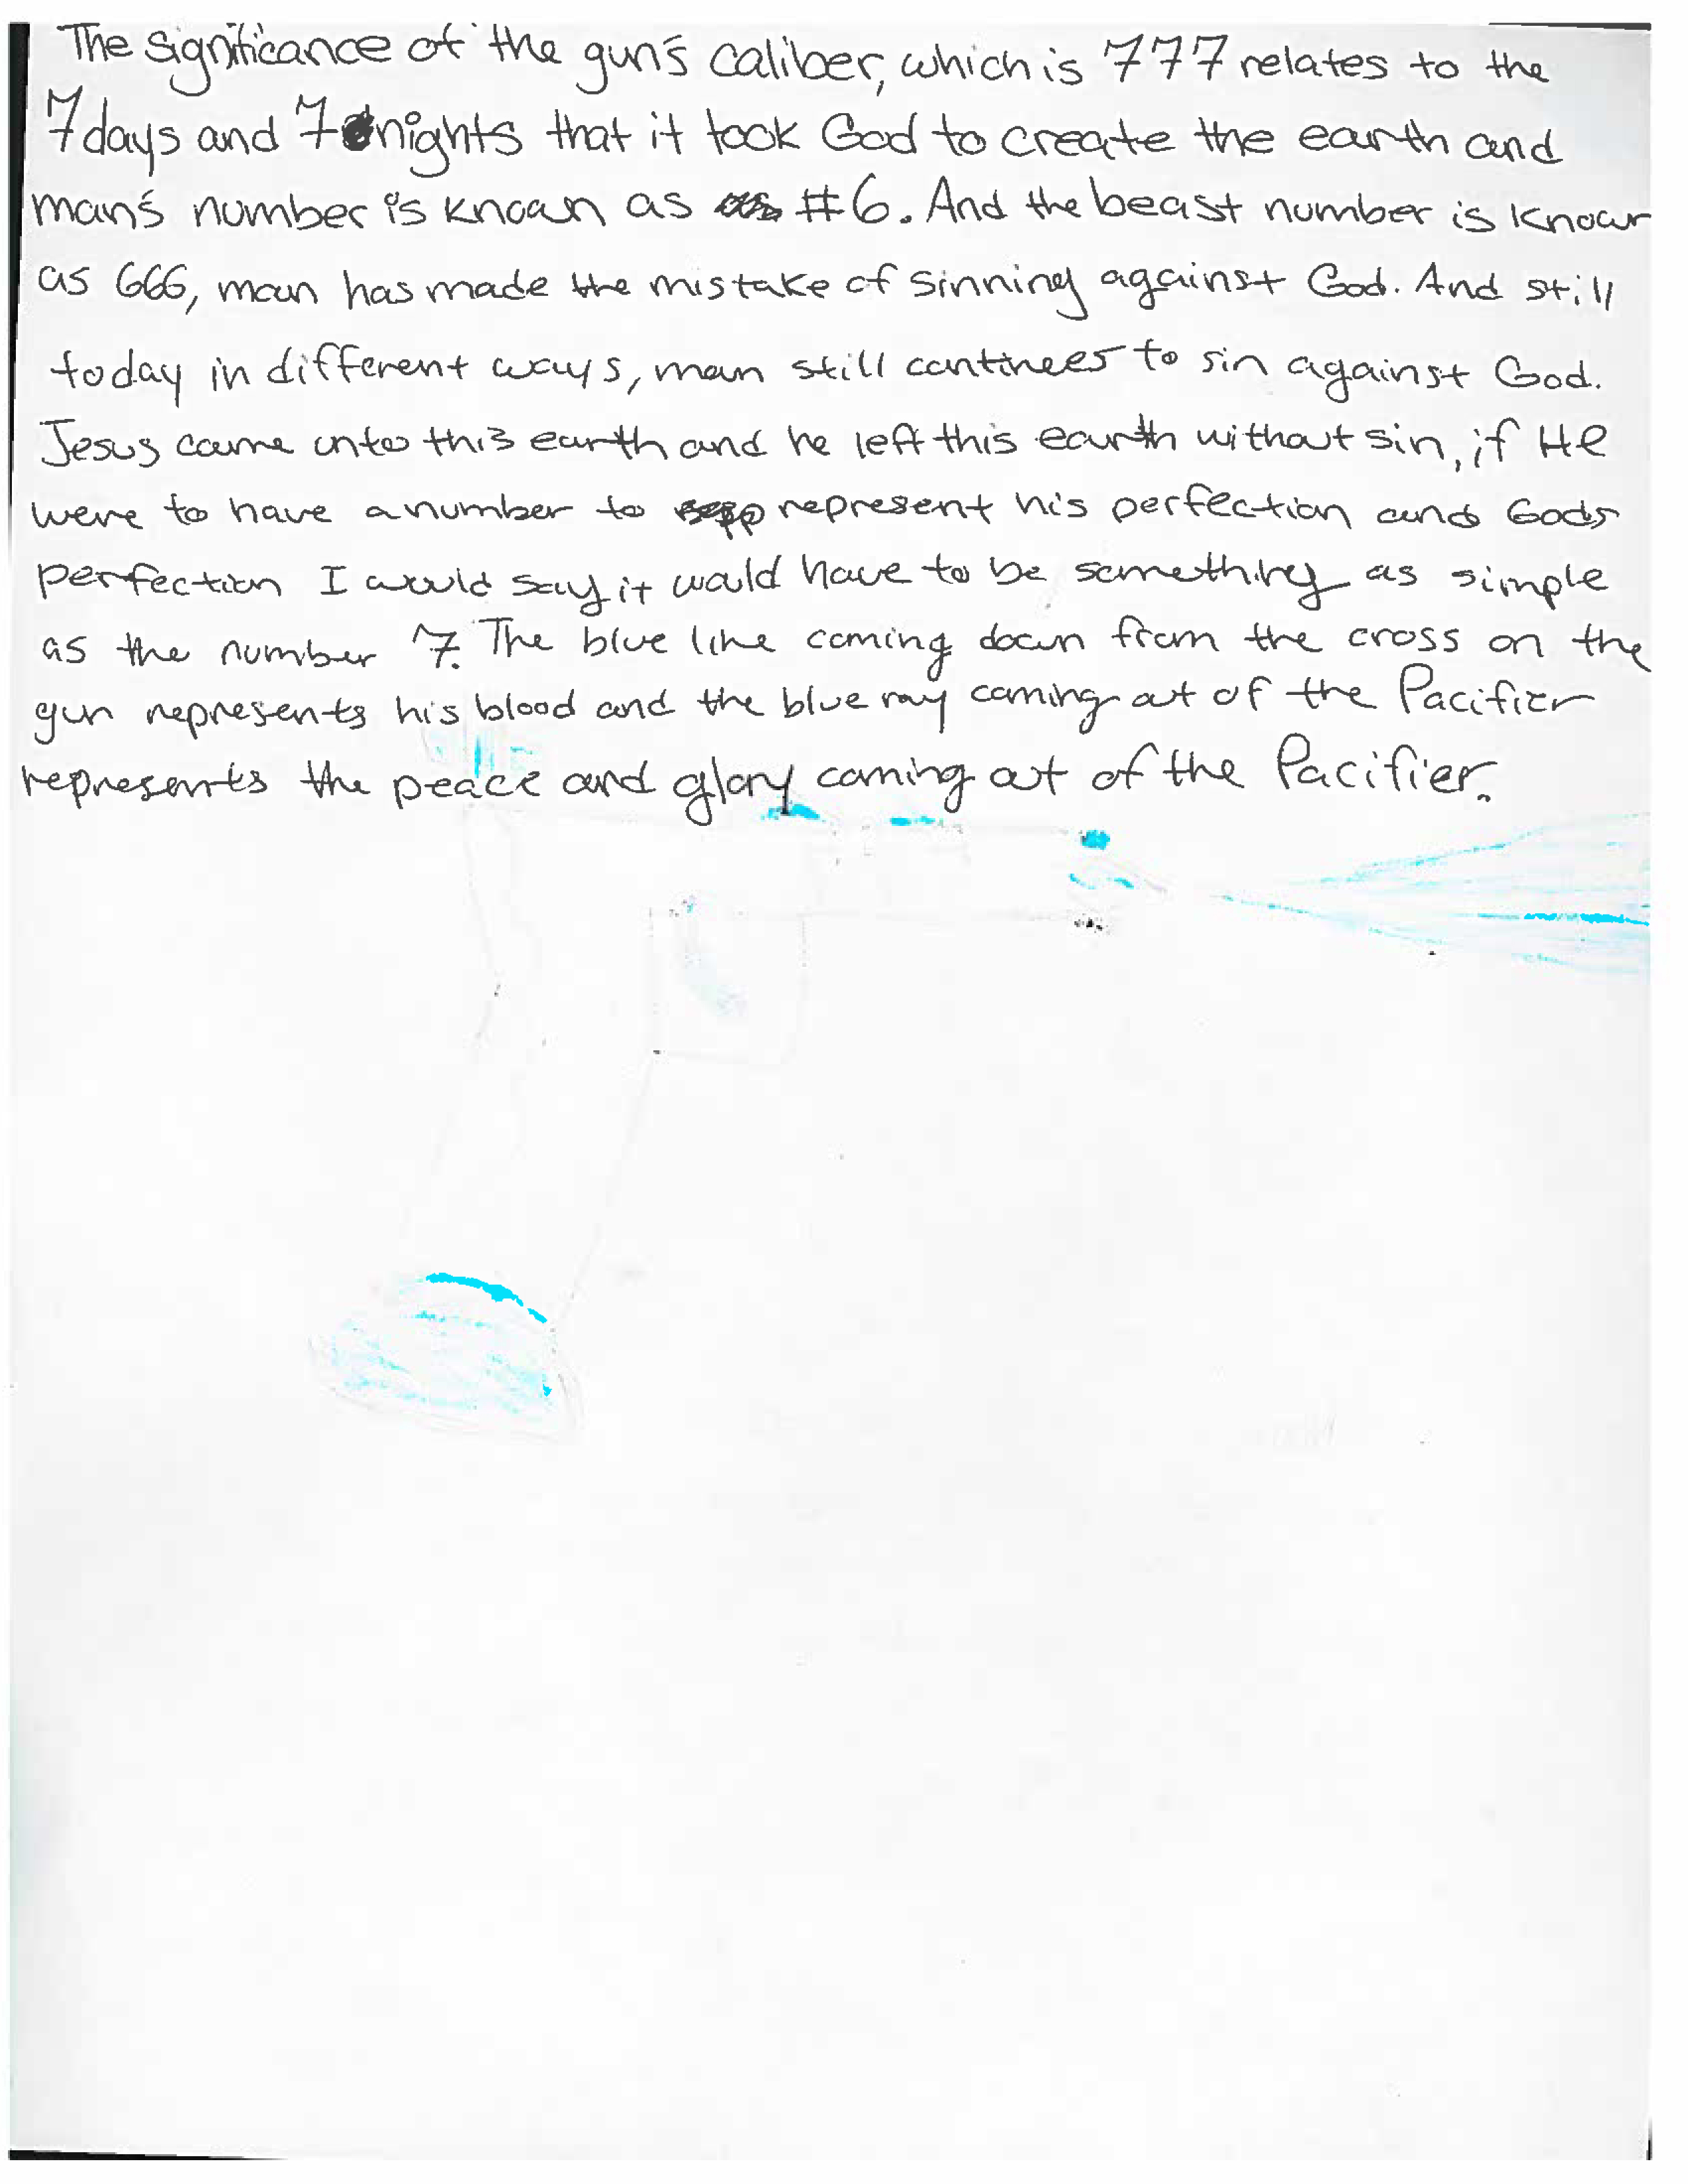 The significance of the gun's caliber, which is 777 relates to the
7 days and 7 nights that it took God to create the earth and
man's number is known as #6. And the beast number is known
as 666, man has made the mistake of sinning against God. And still
today in different ways, man still continees to sin against God.
Jesus came unto this earth and he left this earth without sin, if He
were to have a number to represent his perfection and Gods
perfection I would say it would have to be something as simple
as the number 7. The blue line coming down from the cross on the
gun represents his blood and the blue ray coming out of the Pacifier
represents the peace and glory coming out of the Pacifier.